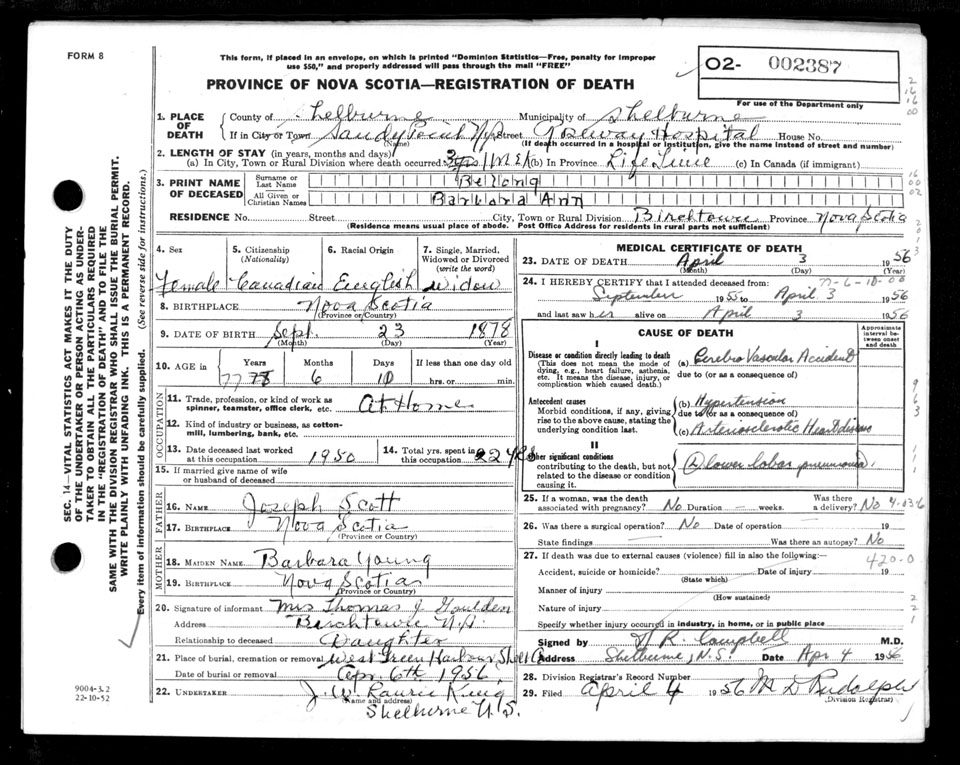 FORM 8
This form, if placed in an envelope, on which is printed "Dominion Statistics—Free, penalty for improper
use $50," and properly addressed will pass through the mail "FREE"
PROVINCE OF NOVA SCOTIA—REGISTRATION OF DEATH
O2- 002387
For use of the Department only
SEC. 14—VITAL STATISTICS ACT MAKES IT THE DUTY
OF THE UNDERTAKER OR PERSON ACTING AS UNDER-
TAKER TO OBTAIN ALL THE PARTICULARS REQUIRED
IN THE "REGISTRATION OF DEATH" AND TO FILE THE
SAME WITH THE DIVISION REGISTRAR WHO SHALL ISSUE THE BURIAL PERMIT.
WRITE PLAINLY WITH UNFADING INK. THIS IS A PERMANENT RECORD.
Every item of information should be carefully supplied. (See reverse side for instructions.)
1. PLACE OF DEATH
County of Shelburne Municipality of Shelburne
If in City or Town Sandy Point N.S. Street Roseway Hospital House No.
(Name) (If death occurred in a hospital or institution, give the name instead of street and number)
2. LENGTH OF STAY (in years, months and days)
(a) In City, Town or Rural Division where death occurred (b) In Province Life Time (c) In Canada (if immigrant)
3. PRINT NAME OF DECEASED
Surname or Last Name Belong
All Given or Christian Names Barbara Ann
RESIDENCE No. Street City, Town or Rural Division Birchtown Province Nova Scotia
(Residence means usual place of abode. Post Office Address for residents in rural parts not sufficient)
4. Sex Female
5. Citizenship (Nationality) Canadian
6. Racial Origin English
7. Single, Married, Widowed or Divorced (write the word) widow
8. BIRTHPLACE Nova Scotia
(Province or Country)
9. DATE OF BIRTH Sept. 23 1878
(Month) (Day) (Year)
10. AGE in Years 77 78 Months 6 Days 10 If less than one day old hrs. or min.
OCCUPATION
11. Trade, profession, or kind of work as spinner, teamster, office clerk, etc. At Home
12. Kind of industry or business, as cotton-mill, lumbering, bank, etc.
13. Date deceased last worked at this occupation 1950
14. Total yrs. spent in this occupation 22 YRS
15. If married give name of wife or husband of deceased
FATHER
16. NAME Joseph Scott
17. BIRTHPLACE Nova Scotia
(Province or Country)
MOTHER
18. MAIDEN NAME Barbara Young
19. BIRTHPLACE Nova Scotia
(Province or Country)
20. Signature of informant Mrs Thomas J Goulden
Address Birchtown N.S.
Relationship to deceased Daughter
21. Place of burial, cremation or removal West Green Harbour
Date of burial or removal Apr. 6th 1956
22. UNDERTAKER J. W. Laurie King
(Name and address)
Shelburne N.S.
9004-3.2
22-10-52
MEDICAL CERTIFICATE OF DEATH
23. DATE OF DEATH April 3 1956
(Month) (Day) (Year)
24. I HEREBY CERTIFY that I attended deceased from:
September 1955 to April 3 1956
and last saw her alive on April 3 1956
CAUSE OF DEATH
Approximate interval between onset and death
I
Disease or condition directly leading to death
(This does not mean the mode of dying, e.g., heart failure, asthenia, etc. It means the disease, injury, or complication which caused death.)
(a) Cerebro Vascular Accident
due to (or as a consequence of)
Antecedent causes
Morbid conditions, if any, giving rise to the above cause, stating the underlying condition last.
(b) Hypertension
due to (or as a consequence of)
(c) Arteriosclerotic Heart disease
II
Other significant conditions
contributing to the death, but not related to the disease or condition causing it.
lower lobar pneumonia
25. If a woman, was the death associated with pregnancy? No Duration — weeks. Was there a delivery? No
26. Was there a surgical operation? No Date of operation — 19
State findings — Was there an autopsy? No
27. If death was due to external causes (violence) fill in also the following:—
420-0
Accident, suicide or homicide? Date of injury 19
(State which)
Manner of injury
(How sustained)
Nature of injury
Specify whether injury occurred in industry, in home, or in public place
Signed by R. Campbell M.D.
Address Shelburne, N.S. Date Apr 4 1956
28. Division Registrar's Record Number
29. Filed April 4 1956 M D Rudolph
(Division Registrar)